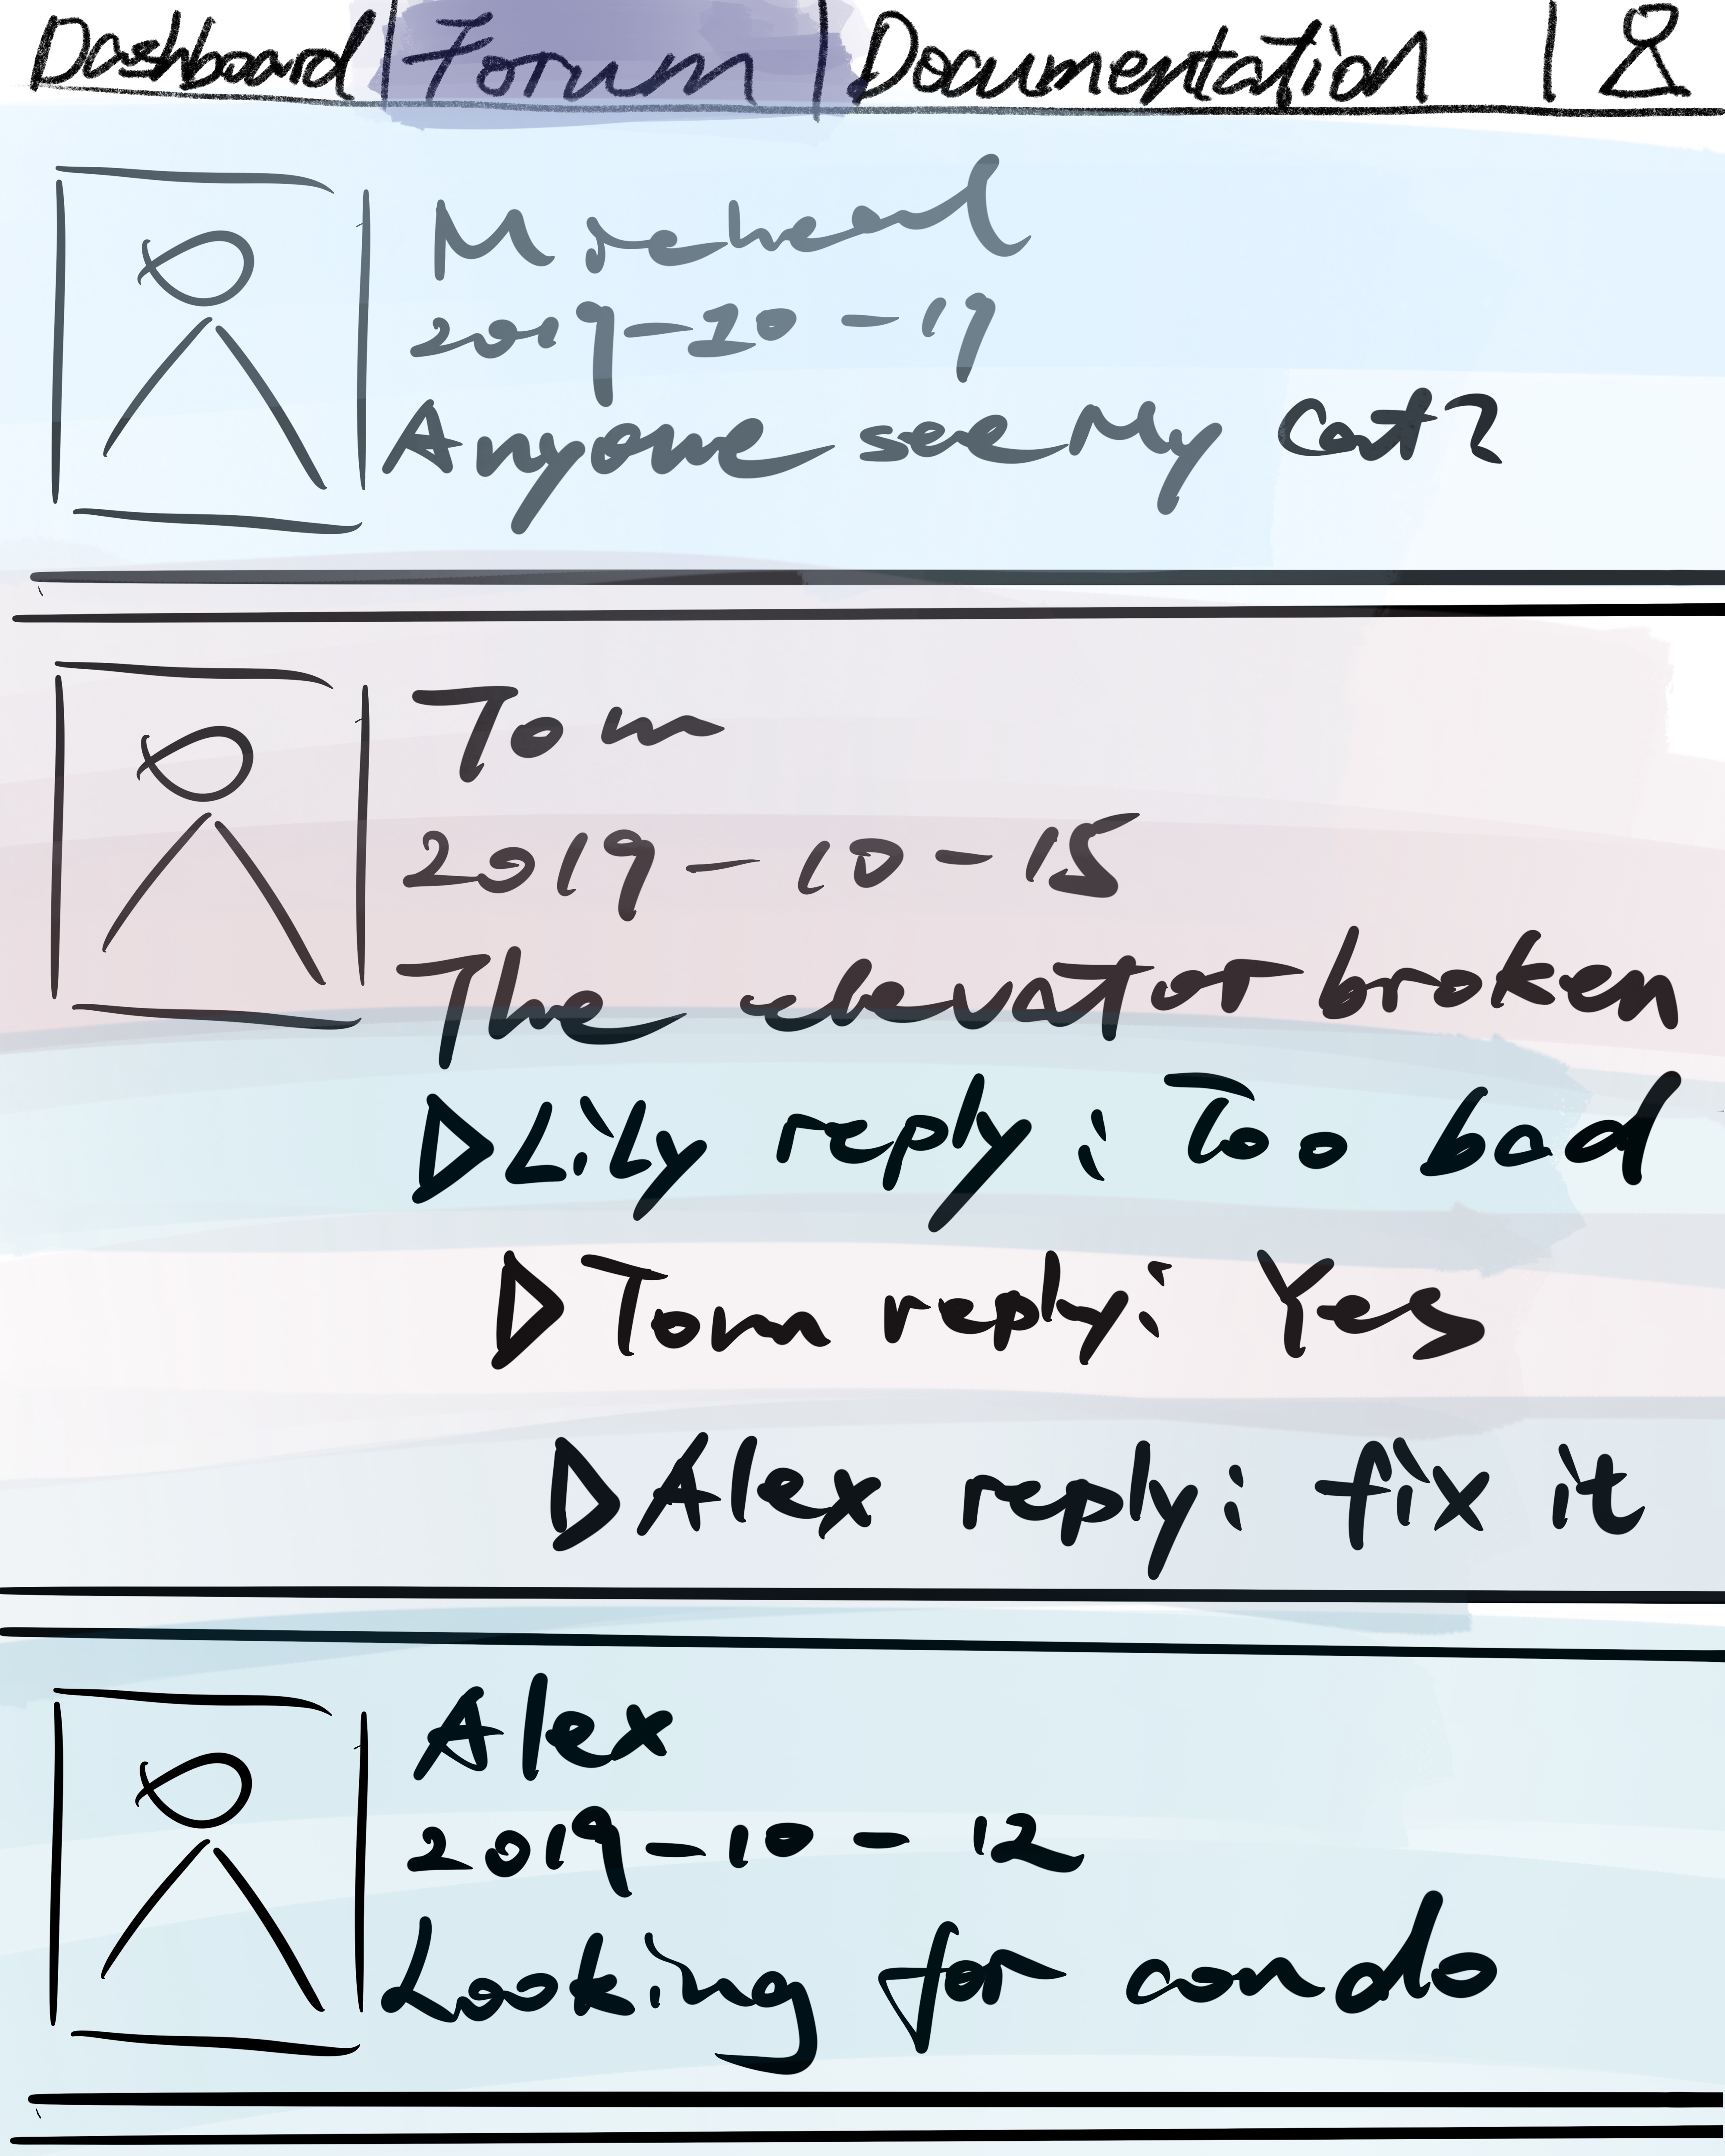 Dashboard | Forum | Documentation |
Micheal
2019-10-19
Anyone see My Cat?
Tom
2019-10-15
The elevator broken
Lily reply: Too bad
Tom reply: Yes
Alex reply: fix it
Alex
2019-10-12
Looking for condo